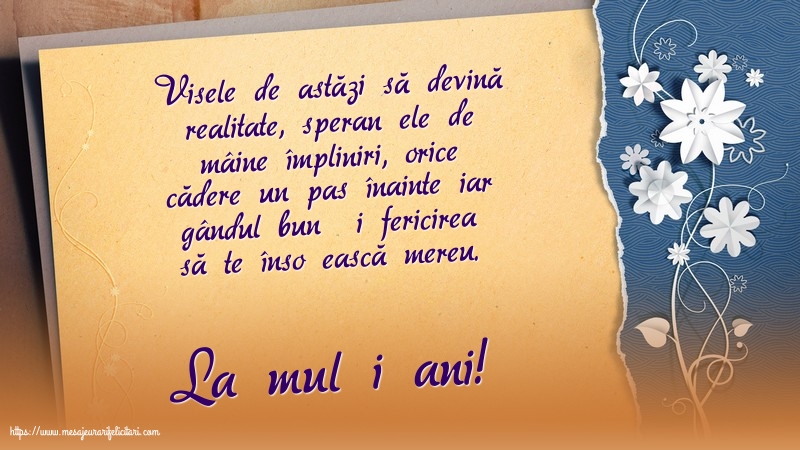 Visele de astăzi să devină
realitate, speran ele de
mâine împliniri, orice
cădere un pas înainte iar
gândul bun i fericirea
să te înso ească mereu.
La mul i ani!
https://www.mesajeurarifelicitari.com